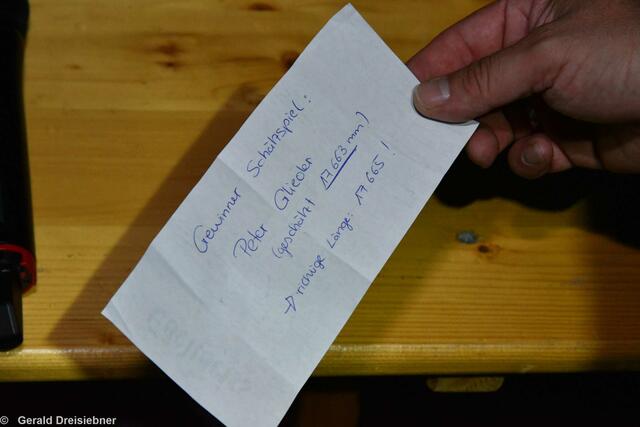 Gewinner Schätzspiel:
Peter Glieder
(geschätzt 17663 mm)
→ richtige Länge: 17665!
© Gerald Dreisiebner